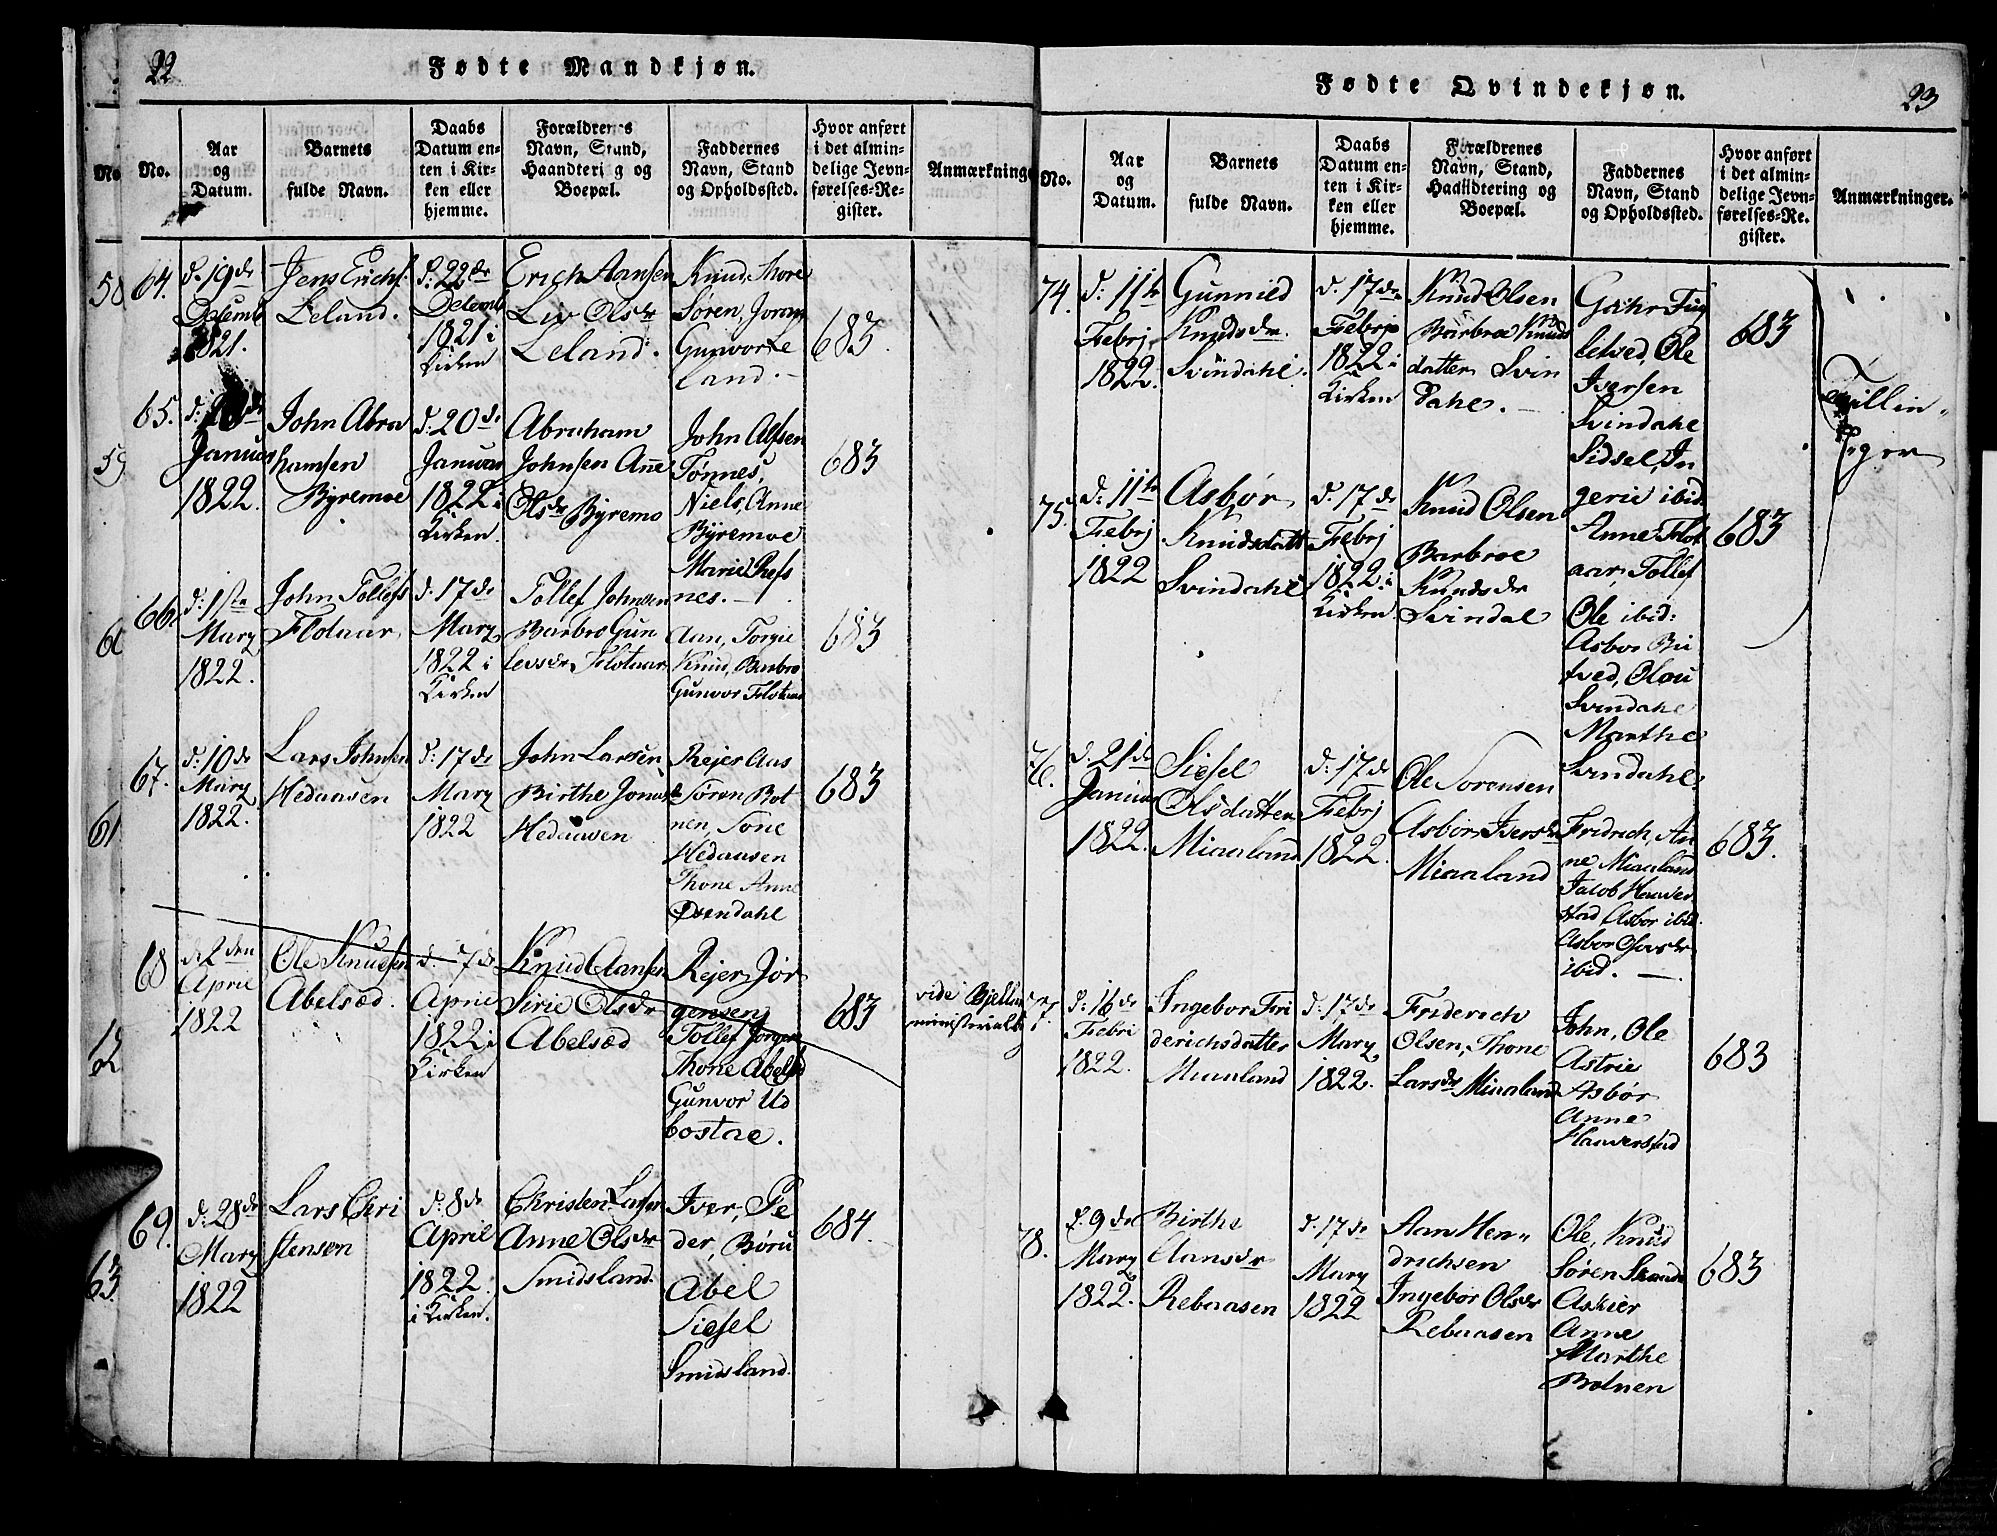 22
Fødte Mandkjøn.
No.
No.
Aar
og
Datum.
Barnets
fulde Navn.
Daabs
Datum en-
ten i Kir-
ken eller
hjemme.
Forældrenes
Navn, Stand,
Haandtering og
Boepæl.
Faddernes
Navn, Stand
og Opholdssted.
Hvor anført
i det almin-
delige Jevn-
førelses-Re-
gister.
Anmærkninge
58
59
60
61
63
64.
d. 19de
Decemb
1821.
Jens Erichs.
Leland.
d: 22de
Decemb
1821 i
Kirken
Erich Aansen
Liv Olsdr
Leland.
Knud, Thore
Søren, Joran
Gunvor Le
land.
683.
65.
Januar
1822.
John Abra
hamsen
Byremoe
d: 20de
Januar
1822 i
Kirken
Abraham
Johnsen Ane
Olsdr Byremo
John Alfsen
Tønnes,
Niels, Anne
Byremoe
Marie Refs
nes.
683
66.
d: 1ste
Marz
1822.
John Tollefs
Flotaar
d. 17de
Marz
1822 i
Kirken
Tollef Johnsen
Barbro Gun
levsdr Flotaar
Aan, Torgie
Knud, Barbro
Gunvor Flotaar
683
67.
d: 10de
Marz
1822.
Lars Johnsen
Hedaasen
d: 17de
Marz
1822
John Larsen
Birthe Jonsdr
Hedaasen
Rejer Aas
Søren Bot
nen, Tone
Hedaasen
Thone Anne
Øvendahl
683
68
d 2den
April
1822
Ole Knudsen
Abelsæd.
d. 7de
April
1822 i
Kirken
Knud Aansen
Sirie Olsdr
Abelsæd
Rejer Jør
gensen
Tollef Jørgens
Thone Abelsæd
Gunvor Ud
bostae.
683
vide Bjelland
ministerialb
69.
d: 28de
Marz
1822
Lars Chri
stensen
d. 8de
April
1822.
i Kirken.
Christen Larsen
Anne Olsdr
Smidsland.
Iver, Pe
der, Børu
Abel
Sidsel
Smidsland.
684.
Fødte Qvindekjøn.
23
No.
Aar
og
Datum.
Barnets
fulde Navn.
Daabs
Datum en-
ten i Kir-
ken eller
hjemme.
Forældrenes
Navn, Stand,
Haandtering og
Boepæl.
Faddernes
Navn, Stand
og Opholdssted.
Hvor anført
i det almin-
delige Jevn-
førelses-Re-
gister.
Anmærkninger.
74.
d. 11te
Febrj.
1822.
Gunnild
Knudsdr.
Svindahl.
d. 17de
Febrj
1822 i
Kirken
Knud Olsen
Barbroe Knuds
datter Svin
dahl.
Gahr Fug
letved, Ole
Iversen
Svindahl
Sidsel, In
gerie ibid
683
Tvillin-
ger
75.
d: 11te
Febrj
1822
Asbør
Knudsdatt
Svindahl
d. 17de
Febrj
1822 i
Kirken
Knud Olsen
Barbroe
Knudsdr
Svindal
Anne Flot
aar, Tollef
Ole ibid:
Asbor Bri
tved, Olau
Svindahl
Marthe
Svindahl.
683
76.
d. 21de
Januar
1822.
Sidsel
Olsdatter
Miaaland
d: 17de
Febrj
1822.
Ole Sorensen
Asbor Iversdr
Miaaland
Fridrich, An
ne Miaaland
Jacob Haaver
stad Asbor ibid
Asbor Olavsdr
ibid.
683.
77.
d: 16de
Febri
1822.
Ingebor Fri
derichsdatter
Miaaland
d: 17de
Marz
1822.
Friderich
Olsen, Thone
Larsdr Miaaland
John, Ole
Astrie
Asbør
Anne
Haaverstad
683
78.
d. 9de
Marz
1822.
Birthe
Aansdr
Rebaasen
d. 17de
Marz
1822
Aan Hen-
drichsen
Ingebor Olsdr
Rebaasen
Ole, Knud
Søren
Askier
Anne
Marthe
Botnen
683